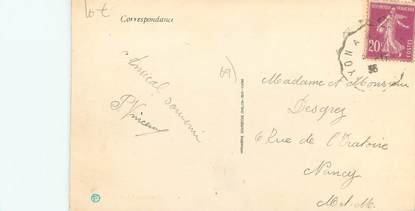 lot
Correspondance
69
Amical souvenir
P. Vincent
Madame et Monsieur
Desgrez
6 Rue de l'Oratoire
Nancy
M. et M.
20c
POSTES